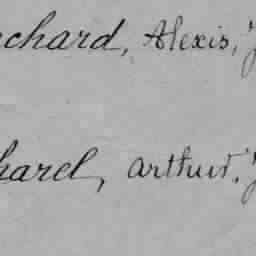 chard, Alexis,
harel, Arthur,